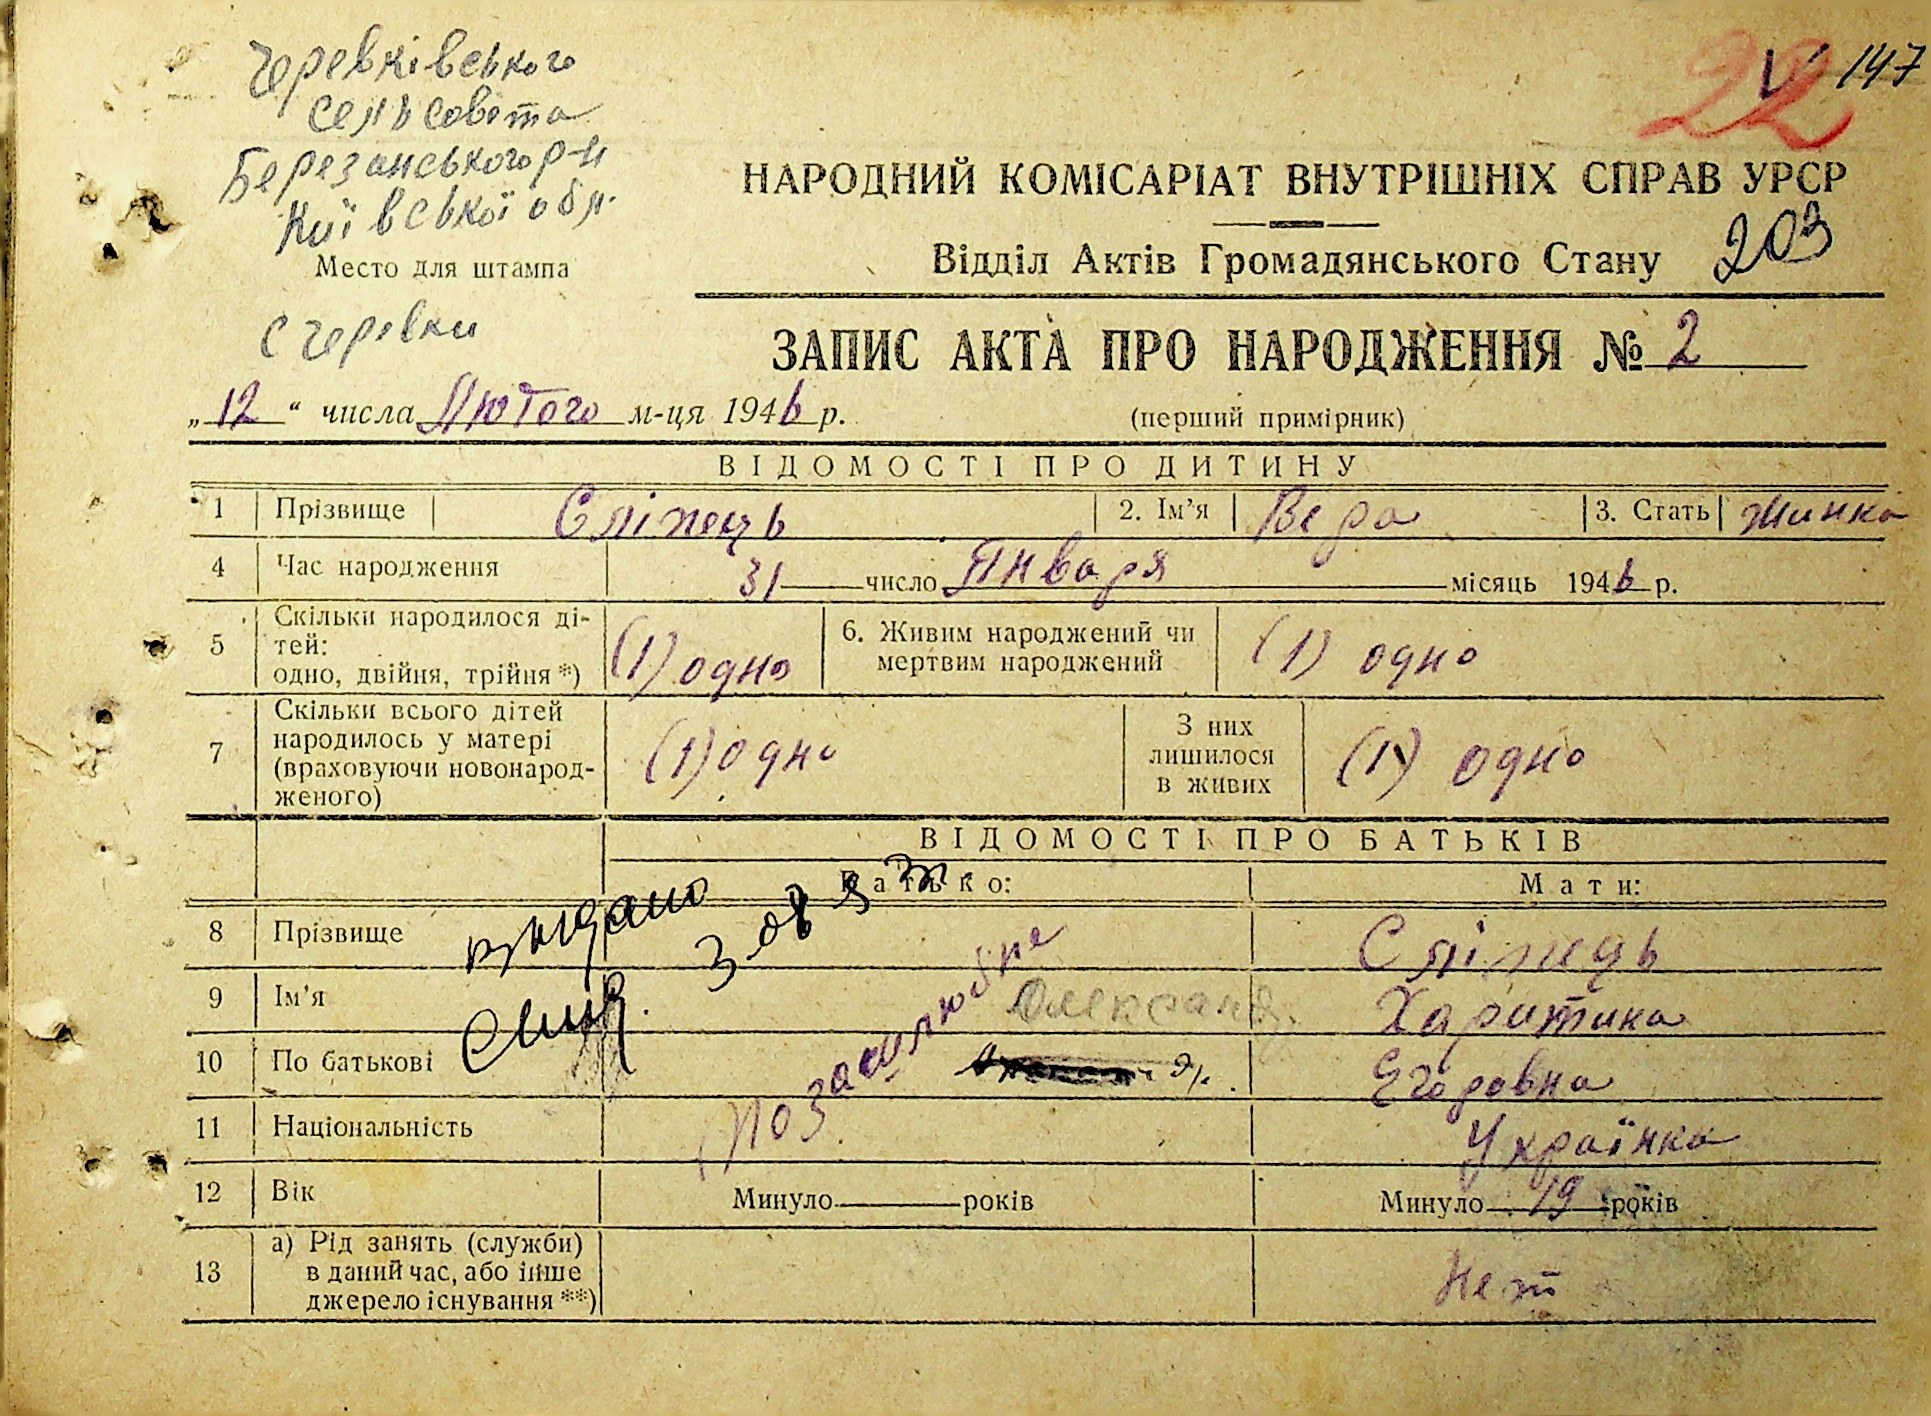 Черевківського
сельсовета
Березанського р-н
Київської обл.
Место для штампа
с Черевки
22
V 147
НАРОДНИЙ КОМІСАРІАТ ВНУТРІШНІХ СПРАВ УРСР
Відділ Актів Громадянського Стану 203
ЗАПИС АКТА ПРО НАРОДЖЕННЯ № 2
„12“ числа Лютого м-ця 1946 р.
(перший примірник)
ВІДОМОСТІ ПРО ДИТИНУ
1 Прізвище Сліпець 2. Ім’я Вера 3. Стать Жинка
4 Час народження 31 число Января місяць 1946 р.
5 Скільки народилося ді-
тей:
одно, двійня, трійня *) (1) одно
6. Живим народжений чи
мертвим народжений (1) одно
7 Скільки всього дітей
народилось у матері
(враховуючи новонарод-
женого) (1) одно
З них
лишилося
в живих (1) одно
ВІДОМОСТІ ПРО БАТЬКІВ
Батько: Мати:
8 Прізвище Сліпець
9 Ім’я Олександ. Харитина
10 По батькові Егоровна
11 Національність Українка
12 Вік Минуло років Минуло 19 років
13 а) Рід занять (служби)
в даний час, або інше
джерело існування **) Нет
выдано